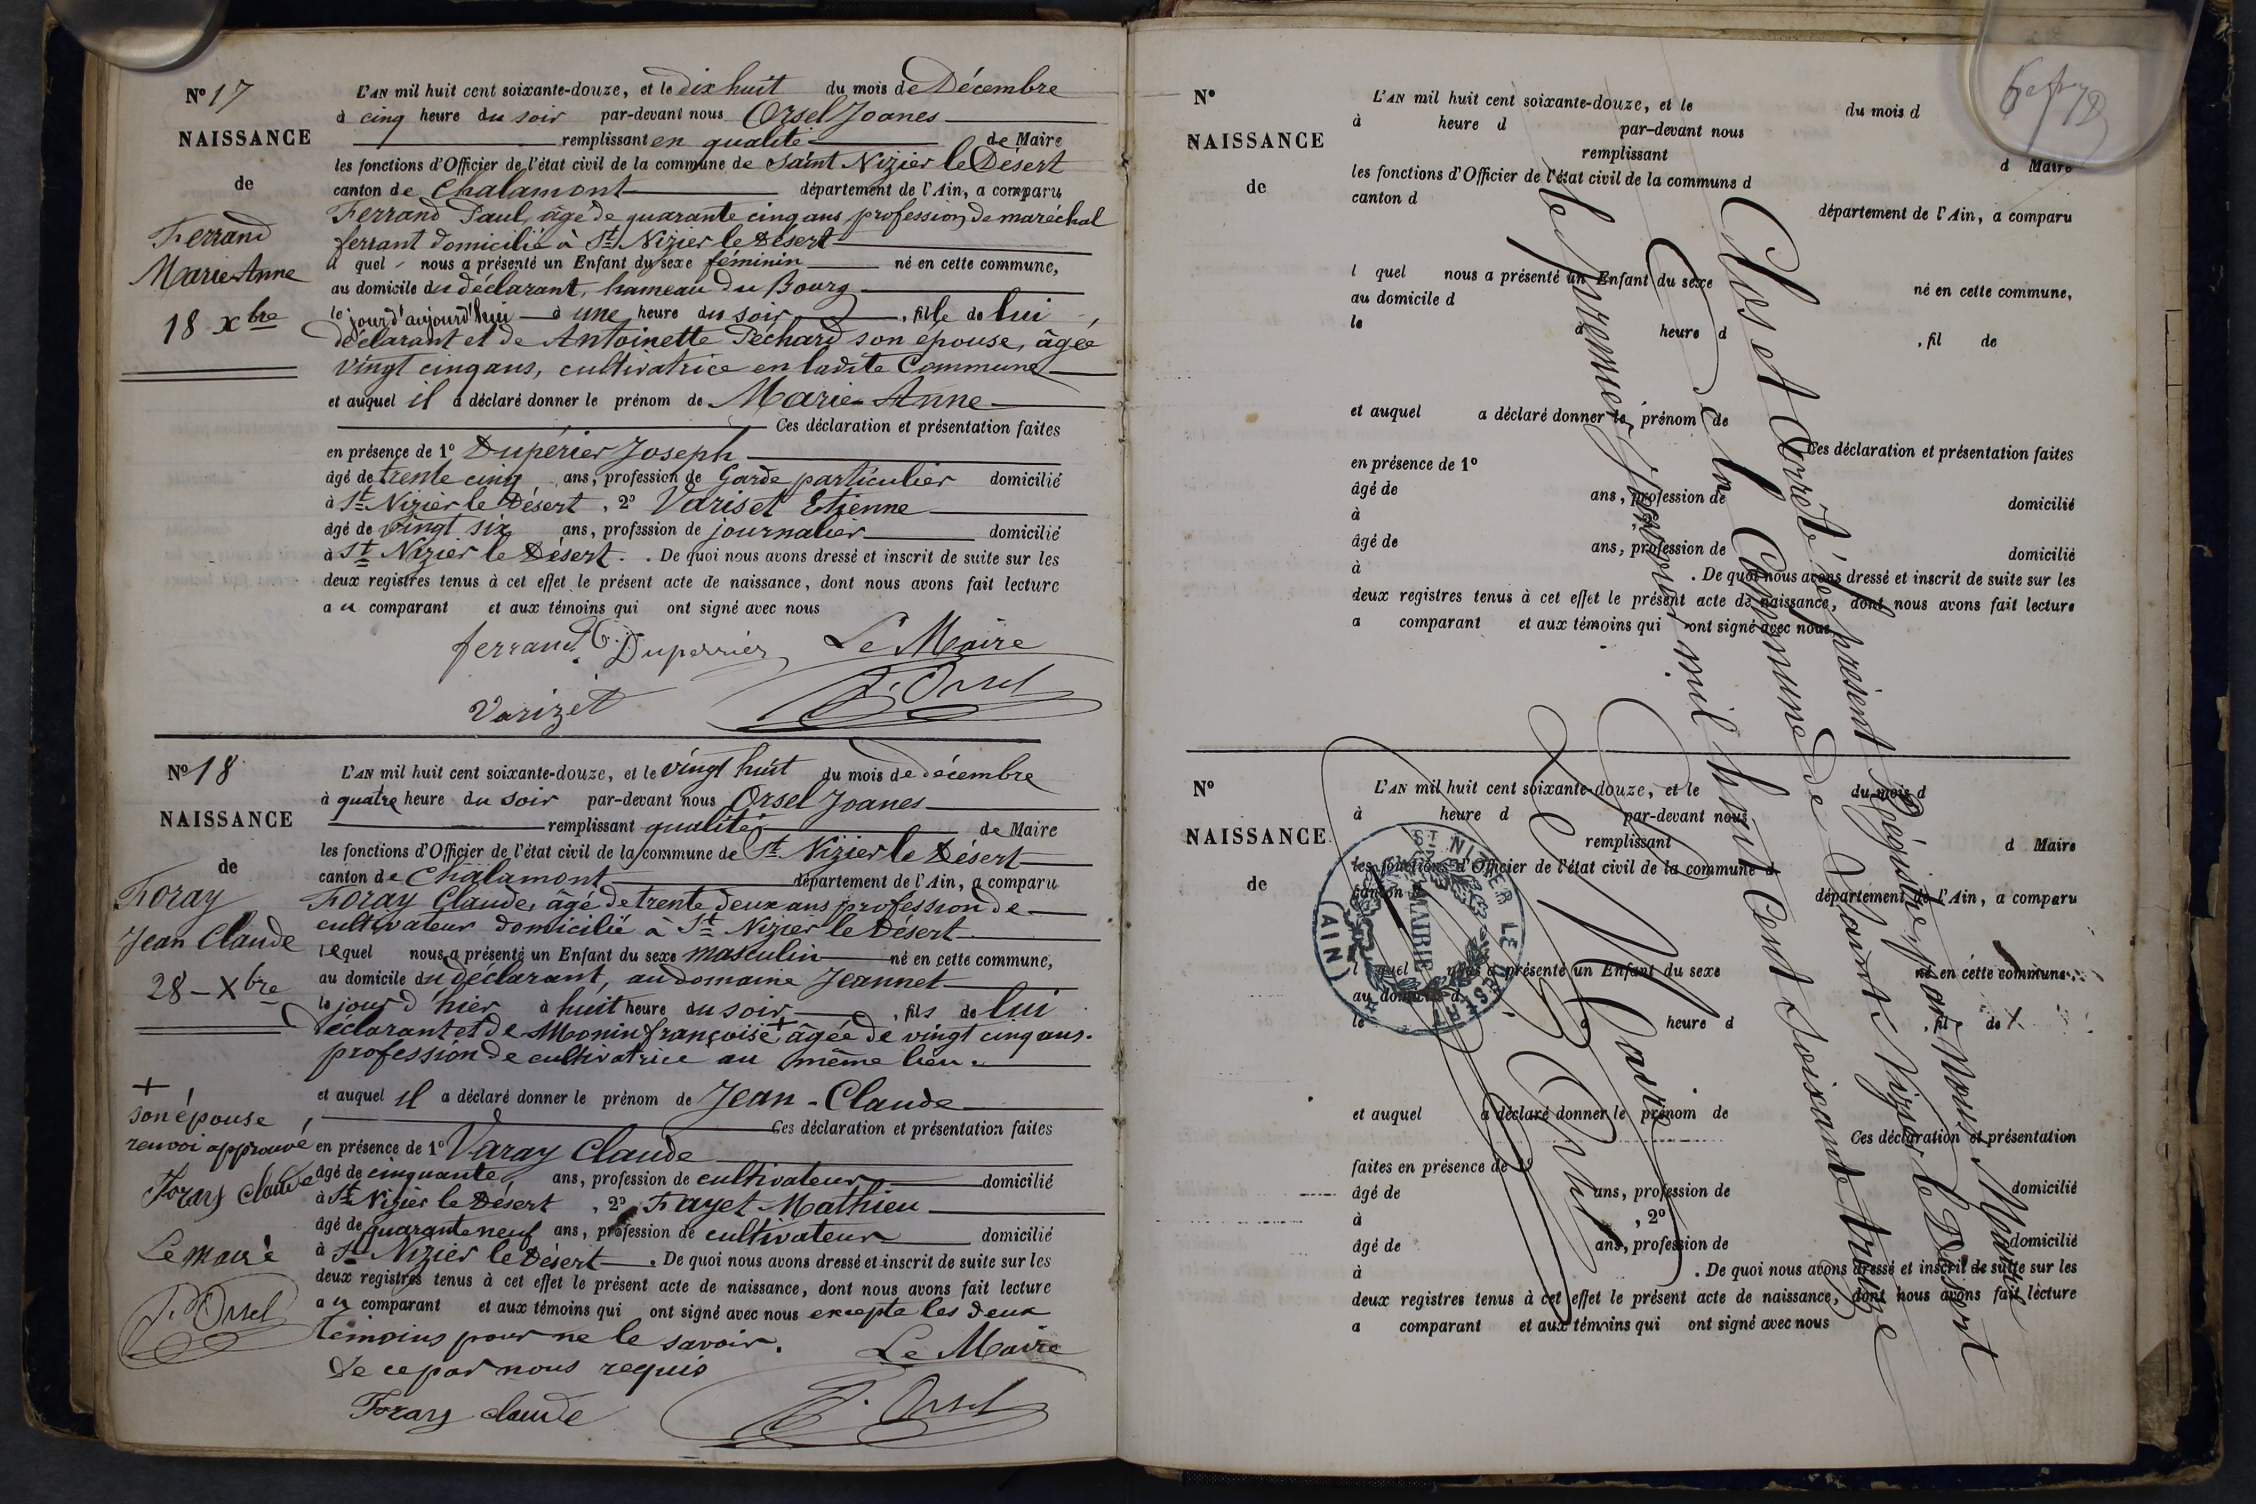 N° 17
NAISSANCE
de
Ferrand
Marie Anne
18 Xbre
L'AN mil huit cent soixante-douze, et le dix huit du mois de Décembre
à cinq heure du soir par-devant nous Orsel Joanes
remplissant en qualité de Maire
les fonctions d'Officier de l'état civil de la commune de Saint Nizier le Désert
canton de Chalamont département de l'Ain, a comparu
Ferrand Paul, âgé de quarante cinq ans profession de maréchal
ferrant domicilié à St Nizier le Désert
quel nous a présenté un Enfant du sexe féminin né en cette commune,
au domicile du déclarant, hameau du Bourg
le jour d'aujourd'hui à une heure du soir, fille de lui
déclarant et de Antoinette Péchard son épouse, âgée
vingt cinq ans, cultivatrice en ladite Commune
et auquel il a déclaré donner le prénom de Marie-Anne
Ces déclaration et présentation faites
en présence de 1° Dupérier Joseph
âgé de trente cinq ans, profession de Garde particulier domicilié
à St Nizier le Désert, 2° Variset Etienne
âgé de vingt six ans, profession de journalier domicilié
à St Nizier le Désert. . De quoi nous avons dressé et inscrit de suite sur les
deux registres tenus à cet effet le présent acte de naissance, dont nous avons fait lecture
au comparant et aux témoins qui ont signé avec nous
ferrand Duperrier Le Maire
Varizet J. Orsel
N° 18
NAISSANCE
de
Foray
Jean Claude
28 - Xbre
L'AN mil huit cent soixante-douze, et le vingt huit du mois de décembre
à quatre heure du soir par-devant nous Orsel Joanes
remplissant qualité de Maire
les fonctions d'Officier de l'état civil de la commune de St Nizier le Désert
canton de Chalamont département de l'Ain, a comparu
Foray Claude, âgé de trente deux ans profession de
cultivateur domicilié à St Nizier le Désert
lequel nous a présenté un Enfant du sexe masculin né en cette commune,
au domicile du déclarant, au domaine Jeannet
le jour d'hier à huit heure du soir, fils de lui
déclarant et de Monin françoise + âgée de vingt cinq ans.
profession de cultivatrice au même lieu.
et auquel il a déclaré donner le prénom de Jean-Claude
Ces déclaration et présentation faites
en présence de 1° Varay Claude
âgé de cinquante ans, profession de cultivateur domicilié
à St Nizier le Désert, 2° Fayet Mathieu
âgé de quarante neuf ans, profession de cultivateur domicilié
à St Nizier le Désert. De quoi nous avons dressé et inscrit de suite sur les
deux registres tenus à cet effet le présent acte de naissance, dont nous avons fait lecture
au comparant et aux témoins qui ont signé avec nous excepté les deux
témoins pour ne le savoir.
de ce par nous requis
Le Maire
Foray claude
J. Orsel
+
son épouse
renvoi approuvé
Foray claude
Le maire
J. Orsel
N°
NAISSANCE
de
L'AN mil huit cent soixante-douze, et le du mois d
à heure d par-devant nous
remplissant d Maire
les fonctions d'Officier de l'état civil de la commune d
canton d département de l'Ain, a comparu
l quel nous a présenté un Enfant du sexe né en cette commune,
au domicile d
le à heure d , fil de
et auquel a déclaré donner le prénom de
Ces déclaration et présentation faites
en présence de 1°
âgé de ans, profession de domicilié
à , 2°
âgé de ans, profession de domicilié
à . De quoi nous avons dressé et inscrit de suite sur les
deux registres tenus à cet effet le présent acte de naissance, dont nous avons fait lecture
a comparant et aux témoins qui ont signé avec nous
N°
NAISSANCE
de
L'AN mil huit cent soixante-douze, et le du mois d
à heure d par-devant nous
remplissant d Maire
les fonctions d'Officier de l'état civil de la commune d
canton d département de l'Ain, a comparu
l quel nous a présenté un Enfant du sexe né en cette commune,
au domicile d
le à heure d , fil de
et auquel a déclaré donner le prénom de
Ces déclaration et présentation
faites en présence de 1°
âgé de ans, profession de domicilié
à , 2°
âgé de ans, profession de domicilié
à . De quoi nous avons dressé et inscrit de suite sur les
deux registres tenus à cet effet le présent acte de naissance, dont nous avons fait lecture
a comparant et aux témoins qui ont signé avec nous
Clos et arrêté le présent Régistre par Nous Maire
de la Commune de Saint Nizier le Désert
le premier Janvier mil huit cent soixante treize
Le Maire
J. Orsel
ST NIZIER LE DÉSERT
MAIRIE
(AIN)